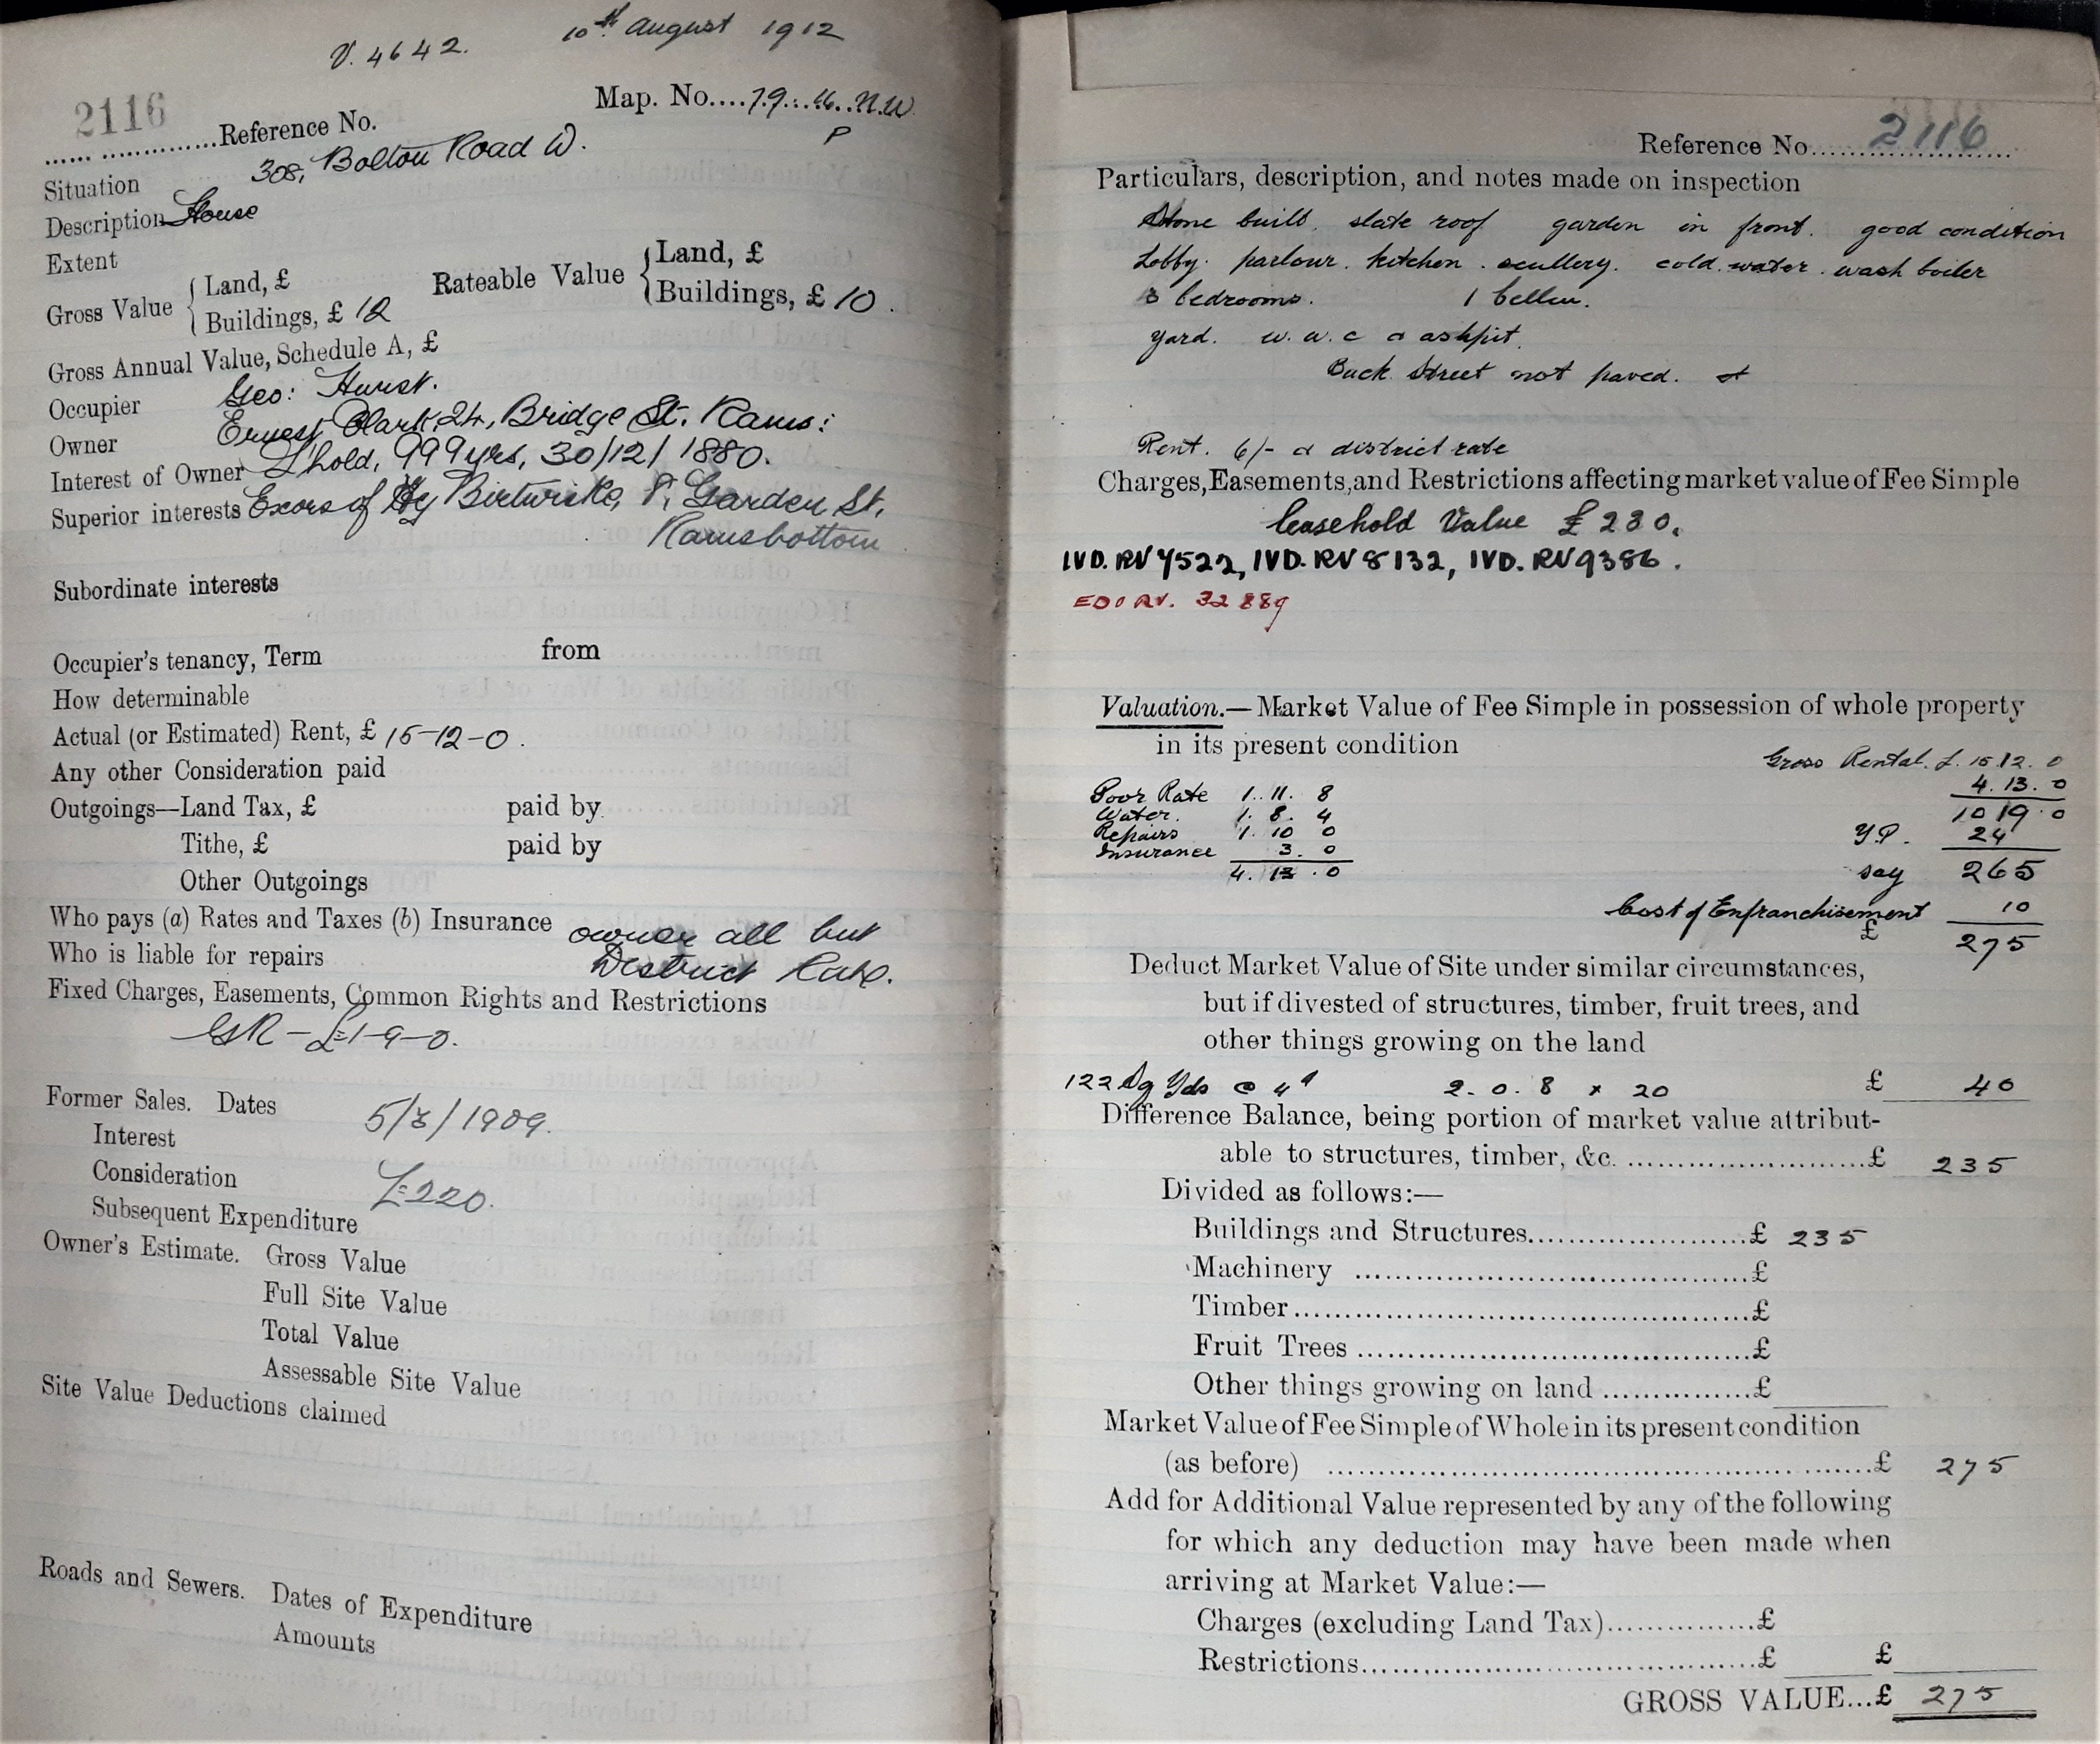 V. 4642. 10th August 1912
2116
Map. No....79....16..N.W.
P
.....................Reference No.
Situation 308, Bolton Road W.
Description House
Extent
Gross Value { Land, £
Buildings, £ 12
Rateable Value { Land, £
Buildings, £ 10.
Gross Annual Value, Schedule A, £
Occupier Geo: Hurst.
Owner Ernest Clark, 24, Bridge St. Rams:
Interest of Owner L'hold, 999 yrs, 30/12/1880.
Superior interests Excors of Hy Birtwistle, Garden St,
Ramsbottom
Subordinate interests
Occupier's tenancy, Term from
How determinable
Actual (or Estimated) Rent, £ 15-12-0.
Any other Consideration paid
Outgoings—Land Tax, £ paid by
Tithe, £ paid by
Other Outgoings
Who pays (a) Rates and Taxes (b) Insurance owner all but
Who is liable for repairs District Rate.
Fixed Charges, Easements, Common Rights and Restrictions
GR - £1-9-0.
Former Sales. Dates 5/3/1909.
Interest
Consideration £220.
Subsequent Expenditure
Owner's Estimate. Gross Value
Full Site Value
Total Value
Assessable Site Value
Site Value Deductions claimed
Roads and Sewers. Dates of Expenditure
Amounts
Reference No. 2116
Particulars, description, and notes made on inspection
Stone built. slate roof garden in front. good condition
Lobby. parlour. kitchen. scullery. cold. water. wash boiler
3 bedrooms. 1 cellar.
yard. w.w.c & ashpit.
Back Street not paved.
Rent. 6/- & district rate
Charges, Easements, and Restrictions affecting market value of Fee Simple
leasehold Value £230.
IVD. RV 7522, IVD. RV 8132, IVD. RV 9386.
EDO RV. 32889
Valuation.—Market Value of Fee Simple in possession of whole property
in its present condition
Gross Rental. £. 15.12.0
Poor Rate 1.11.8 4.13.0
Water. 1.8.4 10 19.0
Repairs 1.10 0 Y.P. 24
Insurance 3.0
4.13.0 say 265
Cost of Enfranchisement 10
£ 275
Deduct Market Value of Site under similar circumstances,
but if divested of structures, timber, fruit trees, and
other things growing on the land
122 Sq Yds @ 4d 2.0.8 x 20 £ 40
Difference Balance, being portion of market value attribut-
able to structures, timber, &c. ........................£ 235
Divided as follows:—
Buildings and Structures......................£ 235
Machinery ........................................£
Timber..............................................£
Fruit Trees ........................................£
Other things growing on land ...............£
Market Value of Fee Simple of Whole in its present condition
(as before) ......................................................£ 275
Add for Additional Value represented by any of the following
for which any deduction may have been made when
arriving at Market Value:—
Charges (excluding Land Tax)...............£
Restrictions........................................£ £
GROSS VALUE...£ 275